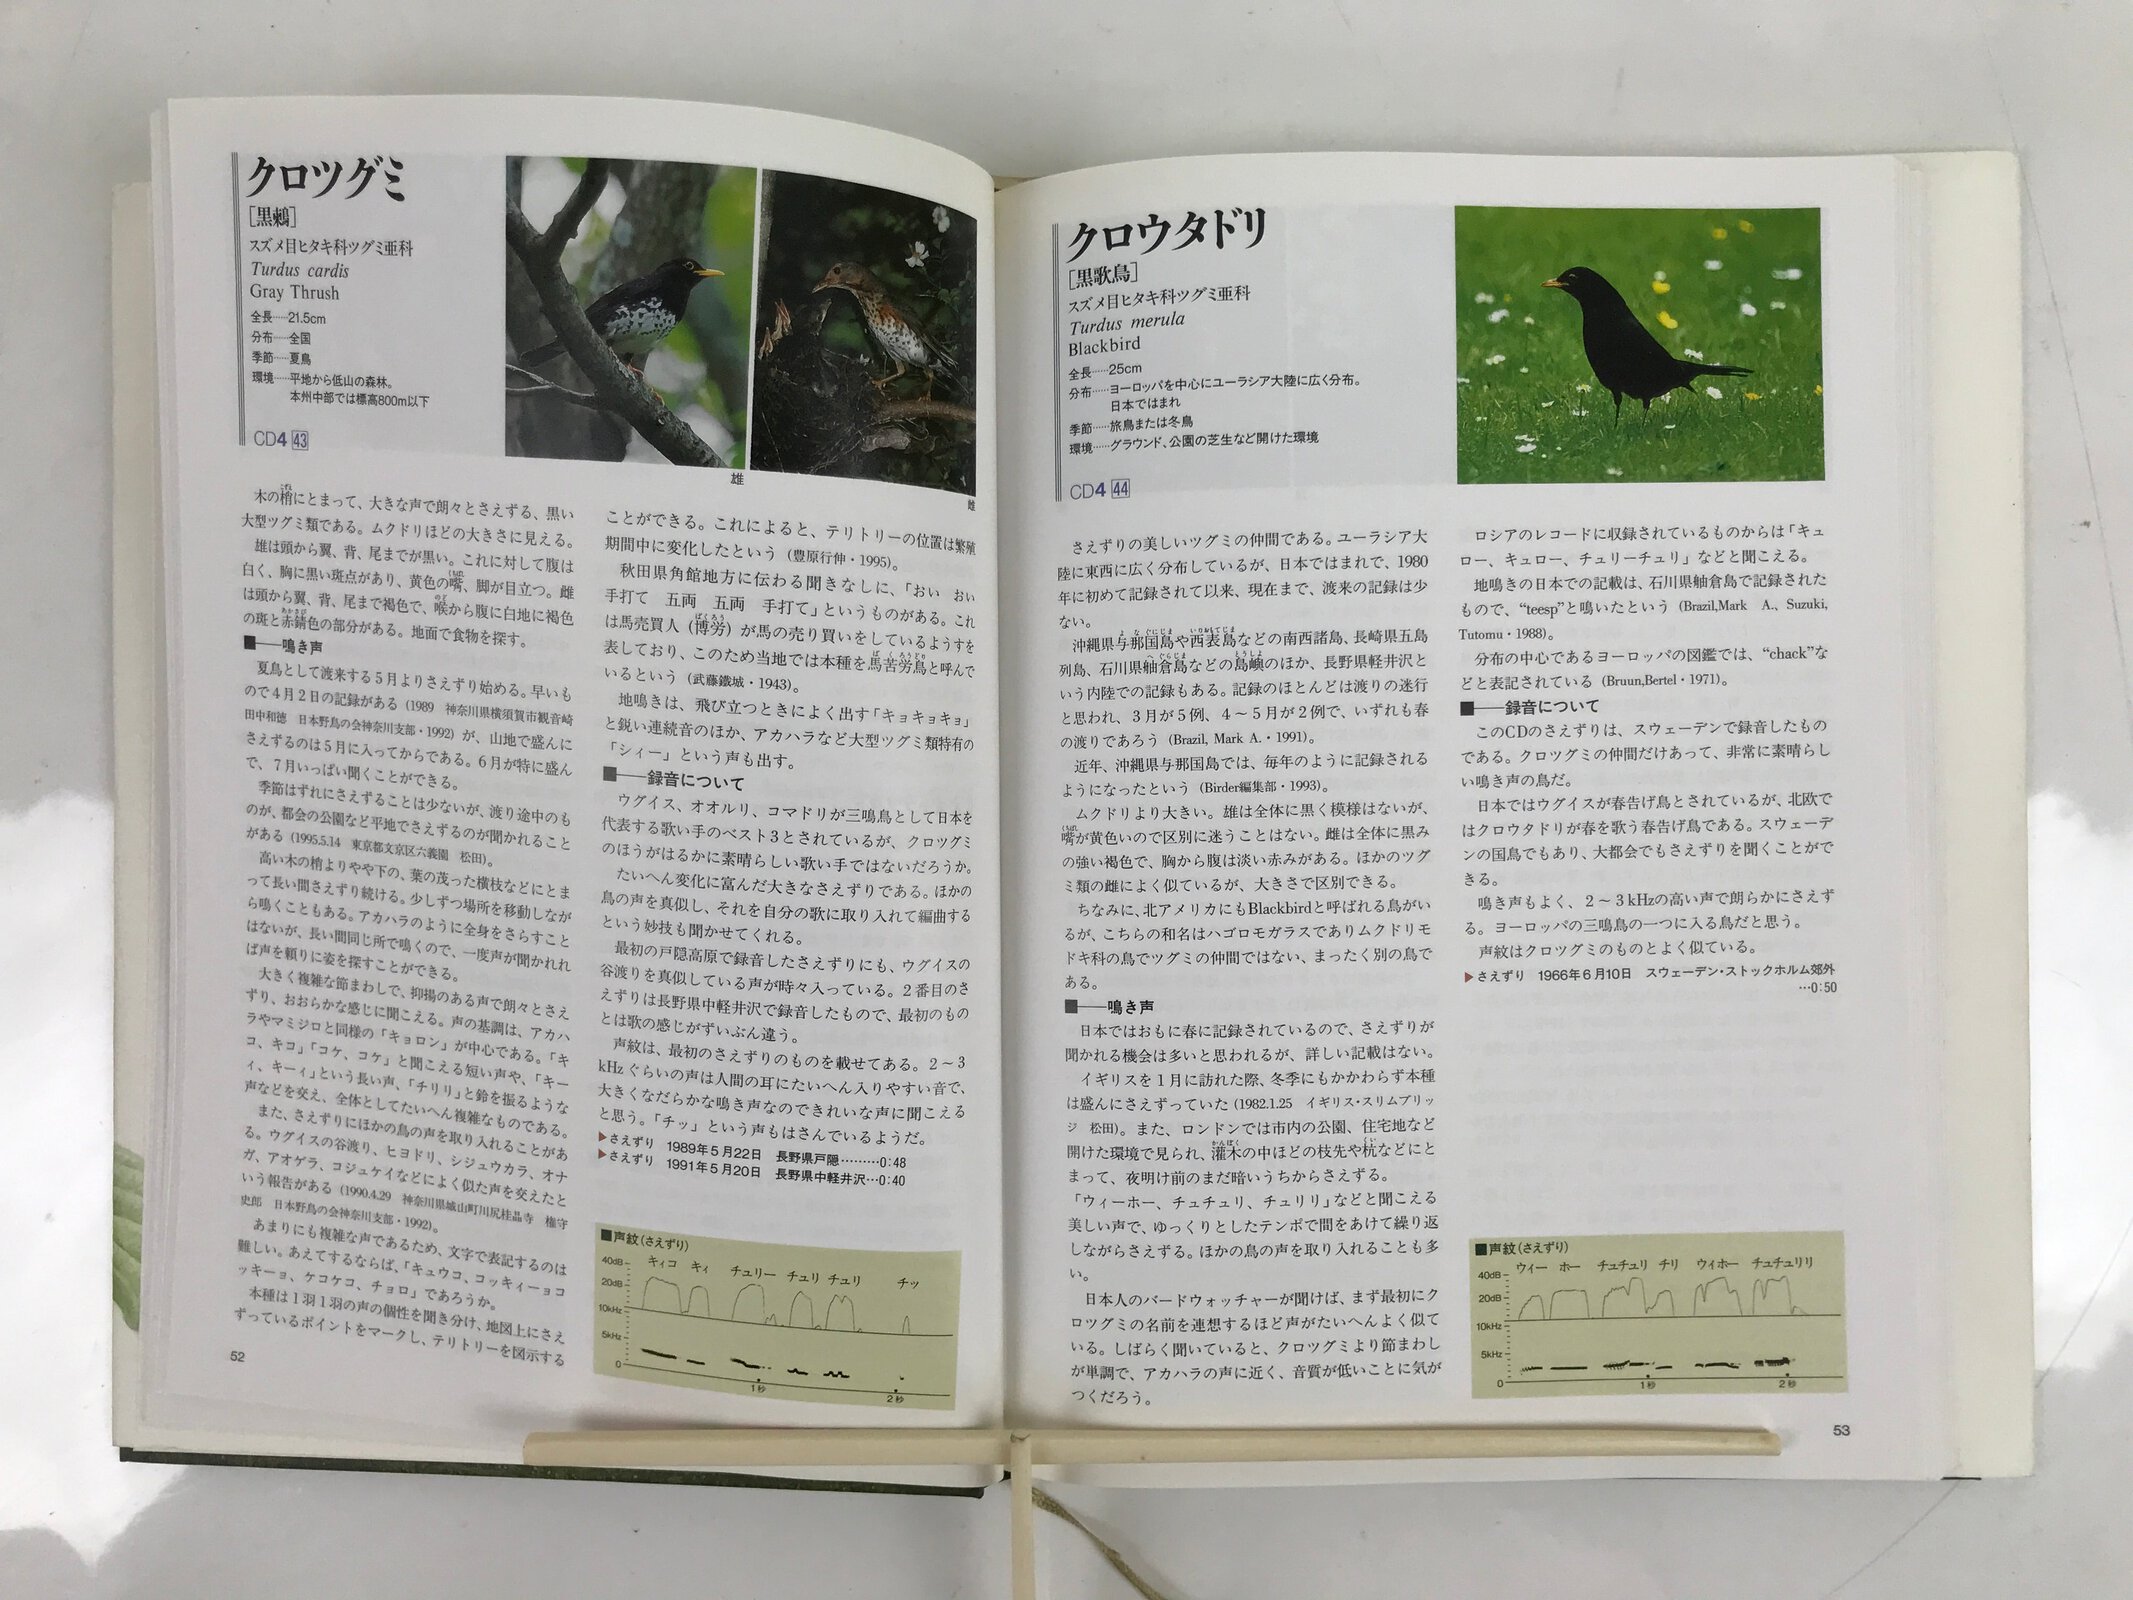 クロツグミ
［黒鶫］
スズメ目ヒタキ科ツグミ亜科
Turdus cardis
Gray Thrush
全長……21.5cm
分布……全国
季節……夏鳥
環境……平地から低山の森林。
本州中部では標高800m以下
CD4 43
雄
雌
木の梢にとまって、大きな声で朗々とさえずる、黒い
大型ツグミ類である。ムクドリほどの大きさに見える。
雄は頭から翼、背、尾までが黒い。これに対して腹は
白く、胸に黒い斑点があり、黄色の嘴、脚が目立つ。雌
は頭から翼、背、尾まで褐色で、喉から腹に白地に褐色
の斑と赤錆色の部分がある。地面で食物を探す。
■──鳴き声
夏鳥として渡来する5月よりさえずり始める。早いも
ので4月2日の記録がある（1989　神奈川県横須賀市観音崎
田中和徳　日本野鳥の会神奈川支部・1992）が、山地で盛んに
さえずるのは5月に入ってからである。6月が特に盛ん
で、7月いっぱい聞くことができる。
季節はずれにさえずることは少ないが、渡り途中のも
のが、都会の公園など平地でさえずるのが聞かれること
がある（1995.5.14　東京都文京区六義園　松田）。
高い木の梢よりやや下の、葉の茂った横枝などにとま
って長い間さえずり続ける。少しずつ場所を移動しなが
ら鳴くこともある。アカハラのように全身をさらすこと
はないが、長い間同じ所で鳴くので、一度声が聞かれれ
ば声を頼りに姿を探すことができる。
大きく複雑な節まわしで、抑揚のある声で朗々とさえ
ずり、おおらかな感じに聞こえる。声の基調は、アカハ
ラやマミジロと同様の「キョロン」が中心である。「キ
コ、キコ」「コケ、コケ」と聞こえる短い声や、「キー
ィ、キーィ」という長い声、「チリリ」と鈴を振るような
声などを交え、全体としてたいへん複雑なものである。
また、さえずりにほかの鳥の声を取り入れることがあ
る。ウグイスの谷渡り、ヒヨドリ、シジュウカラ、オナ
ガ、アオゲラ、コジュケイなどによく似た声を交えたと
いう報告がある（1990.4.29　神奈川県城山町川尻桂晶寺　権守
史郎　日本野鳥の会神奈川支部・1992）。
あまりにも複雑な声であるため、文字で表記するのは
難しい。あえてするならば、「キュウコ、コッキィーョコ
ッキーョ、ケコケコ、チョロ」であろうか。
本種は1羽1羽の声の個性を聞き分け、地図上にさえ
ずっているポイントをマークし、テリトリーを図示する
52
ことができる。これによると、テリトリーの位置は繁殖
期間中に変化したという（豊原行伸・1995）。
秋田県角館地方に伝わる聞きなしに、「おい　おい
手打て　五両　五両　手打て」というものがある。これ
は馬売買人（博労）が馬の売り買いをしているようすを
表しており、このため当地では本種を馬苦労鳥と呼んで
いるという（武藤鐵城・1943）。
地鳴きは、飛び立つときによく出す「キョキョキョ」
と鋭い連続音のほか、アカハラなど大型ツグミ類特有の
「シィー」という声も出す。
■──録音について
ウグイス、オオルリ、コマドリが三鳴鳥として日本を
代表する歌い手のベスト3とされているが、クロツグミ
のほうがはるかに素晴らしい歌い手ではないだろうか。
たいへん変化に富んだ大きなさえずりである。ほかの
鳥の声を真似し、それを自分の歌に取り入れて編曲する
という妙技も聞かせてくれる。
最初の戸隠高原で録音したさえずりにも、ウグイスの
谷渡りを真似している声が時々入っている。2番目のさ
えずりは長野県中軽井沢で録音したもので、最初のもの
とは歌の感じがずいぶん違う。
声紋は、最初のさえずりのものを載せてある。2～3
kHzぐらいの声は人間の耳にたいへん入りやすい音で、
大きくなだらかな鳴き声なのできれいな声に聞こえる
と思う。「チッ」という声もはさんでいるようだ。
▶さえずり　1989年5月22日　長野県戸隠………0:48
▶さえずり　1991年5月20日　長野県中軽井沢…0:40
■声紋（さえずり）
キィコ　キィ　チュリー　チュリ　チュリ　チッ
40dB
20dB
10kHz
5kHz
0
1秒
2秒
クロウタドリ
［黒歌鳥］
スズメ目ヒタキ科ツグミ亜科
Turdus merula
Blackbird
全長……25cm
分布……ヨーロッパを中心にユーラシア大陸に広く分布。
日本ではまれ
季節……旅鳥または冬鳥
環境……グラウンド、公園の芝生など開けた環境
CD4 44
さえずりの美しいツグミの仲間である。ユーラシア大
陸に東西に広く分布しているが、日本ではまれで、1980
年に初めて記録されて以来、現在まで、渡来の記録は少
ない。
沖縄県与那国島や西表島などの南西諸島、長崎県五島
列島、石川県舳倉島などの島嶼のほか、長野県軽井沢と
いう内陸での記録もある。記録のほとんどは渡りの迷行
と思われ、3月が5例、4～5月が2例で、いずれも春
の渡りであろう（Brazil, Mark A.・1991）。
近年、沖縄県与那国島では、毎年のように記録される
ようになったという（Birder編集部・1993）。
ムクドリより大きい。雄は全体に黒く模様はないが、
嘴が黄色いので区別に迷うことはない。雌は全体に黒み
の強い褐色で、胸から腹は淡い赤みがある。ほかのツグ
ミ類の雌によく似ているが、大きさで区別できる。
ちなみに、北アメリカにもBlackbirdと呼ばれる鳥がい
るが、こちらの和名はハゴロモガラスでありムクドリモ
ドキ科の鳥でツグミの仲間ではない、まったく別の鳥で
ある。
■──鳴き声
日本ではおもに春に記録されているので、さえずりが
聞かれる機会は多いと思われるが、詳しい記載はない。
イギリスを1月に訪れた際、冬季にもかかわらず本種
は盛んにさえずっていた（1982.1.25　イギリス・スリムブリッ
ジ　松田）。また、ロンドンでは市内の公園、住宅地など
開けた環境で見られ、灌木の中ほどの枝先や杭などにと
まって、夜明け前のまだ暗いうちからさえずる。
「ウィーホー、チュチュリ、チュリリ」などと聞こえる
美しい声で、ゆっくりとしたテンポで間をあけて繰り返
しながらさえずる。ほかの鳥の声を取り入れることも多
い。
日本人のバードウォッチャーが聞けば、まず最初にク
ロツグミの名前を連想するほど声がたいへんよく似て
いる。しばらく聞いていると、クロツグミより節まわし
が単調で、アカハラの声に近く、音質が低いことに気が
つくだろう。
ロシアのレコードに収録されているものからは「キュ
ロー、キュロー、チュリーチュリ」などと聞こえる。
地鳴きの日本での記載は、石川県舳倉島で記録された
もので、“teesp”と鳴いたという（Brazil,Mark　A.、Suzuki,
Tutomu・1988）。
分布の中心であるヨーロッパの図鑑では、“chack”な
どと表記されている（Bruun,Bertel・1971）。
■──録音について
このCDのさえずりは、スウェーデンで録音したもの
である。クロツグミの仲間だけあって、非常に素晴らし
い鳴き声の鳥だ。
日本ではウグイスが春告げ鳥とされているが、北欧で
はクロウタドリが春を歌う春告げ鳥である。スウェーデ
ンの国鳥でもあり、大都会でもさえずりを聞くことがで
きる。
鳴き声もよく、2～3kHzの高い声で朗らかにさえず
る。ヨーロッパの三鳴鳥の一つに入る鳥だと思う。
声紋はクロツグミのものとよく似ている。
▶さえずり　1966年6月10日　スウェーデン・ストックホルム郊外
…0:50
■声紋（さえずり）
ウィー　ホー　チュチュリ　チリ　ウィホー　チュチュリリ
40dB
20dB
10kHz
5kHz
0
1秒
2秒
53